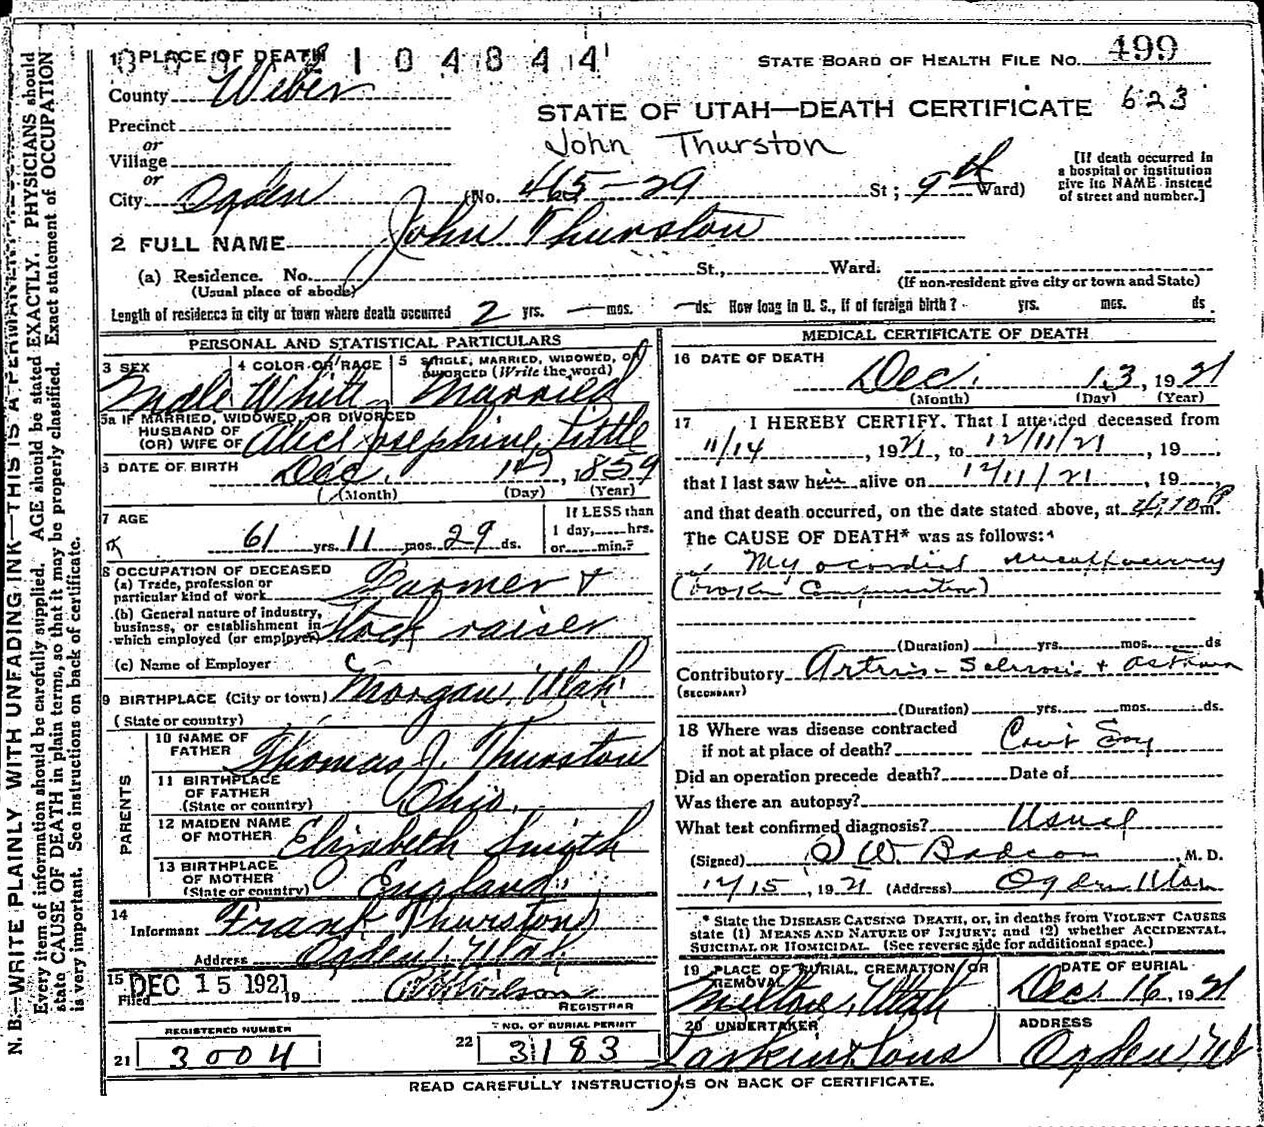 1 PLACE OF DEATH 104844
STATE BOARD OF HEALTH FILE NO. 499
County Weber
STATE OF UTAH—DEATH CERTIFICATE 623
Precinct
or
John Thurston
Village
or
City Ogden (No. 465-29 St; 9th Ward)
[If death occurred in
a hospital or institution
give its NAME instead
of street and number.]
2 FULL NAME John Thurston
(a) Residence. No. St., Ward.
(Usual place of abode) (If non-resident give city or town and State)
Length of residence in city or town where death occurred 2 yrs. — mos. — ds. How long in U. S., if of foreign birth? yrs. mos. ds
PERSONAL AND STATISTICAL PARTICULARS
3 SEX Male
4 COLOR OR RACE White
5 SINGLE, MARRIED, WIDOWED, OR
DIVORCED (Write the word)
Married
5a IF MARRIED, WIDOWED, OR DIVORCED
HUSBAND OF
(OR) WIFE OF Alice Josephine Little
6 DATE OF BIRTH Dec. 1859
(Month) (Day) (Year)
7 AGE
61 yrs. 11 mos. 29 ds.
If LESS than
1 day, hrs.
or min.?
8 OCCUPATION OF DECEASED
(a) Trade, profession or
particular kind of work Farmer +
(b) General nature of industry,
business, or establishment in
which employed (or employer) Stock raiser
(c) Name of Employer
9 BIRTHPLACE (City or town) Morgan, Utah
(State or country)
PARENTS
10 NAME OF
FATHER Thomas J. Thurston
11 BIRTHPLACE
OF FATHER
(State or country) Ohio.
12 MAIDEN NAME
OF MOTHER Elizabeth Smith
13 BIRTHPLACE
OF MOTHER
(State or country) England
14
Informant Frank Thurston
Address Ogden, Utah
15
Filed DEC 15 1921 19 Wilson
REGISTRAR
REGISTERED NUMBER
21 3004
NO. OF BURIAL PERMIT
22 3183
MEDICAL CERTIFICATE OF DEATH
16 DATE OF DEATH
Dec. 13, 1921
(Month) (Day) (Year)
17 I HEREBY CERTIFY. That I attended deceased from
11/14, 1921, to 12/11/21, 19
that I last saw him alive on 12/11/21, 19
and that death occurred, on the date stated above, at 4,10 P m.
The CAUSE OF DEATH* was as follows:
Myocardial
(broken Compensation)
(Duration) yrs. mos. ds
Contributory Arterio-Sclerosis + Asthma
(SECONDARY)
(Duration) yrs. mos. ds.
18 Where was disease contracted
if not at place of death? Can't Say
Did an operation precede death? Date of
Was there an autopsy?
What test confirmed diagnosis? Usual
(Signed) W. Badcon M. D.
12/15, 1921 (Address) Ogden, Utah
* State the DISEASE CAUSING DEATH, or, in deaths from VIOLENT CAUSES
state (1) MEANS AND NATURE OF INJURY; and (2) whether ACCIDENTAL,
SUICIDAL OR HOMICIDAL. (See reverse side for additional space.)
19 PLACE OF BURIAL, CREMATION, OR
REMOVAL
Milton, Utah
DATE OF BURIAL
Dec. 16, 1921
20 UNDERTAKER
Larkin & Sons
ADDRESS
Ogden, Ut
READ CAREFULLY INSTRUCTIONS ON BACK OF CERTIFICATE.
N. B.—WRITE PLAINLY WITH UNFADING INK—THIS IS A PERMANENT
Every item of information should be carefully supplied. AGE should be stated EXACTLY. PHYSICIANS should
state CAUSE OF DEATH in plain terms, so that it may be properly classified. Exact statement of OCCUPATION
is very important. See instructions on back of certificate.